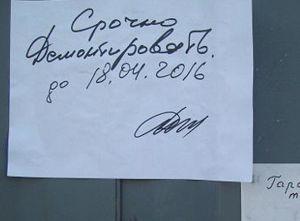 Срочно
Демонтировать.
до 18.04.2016
Гара